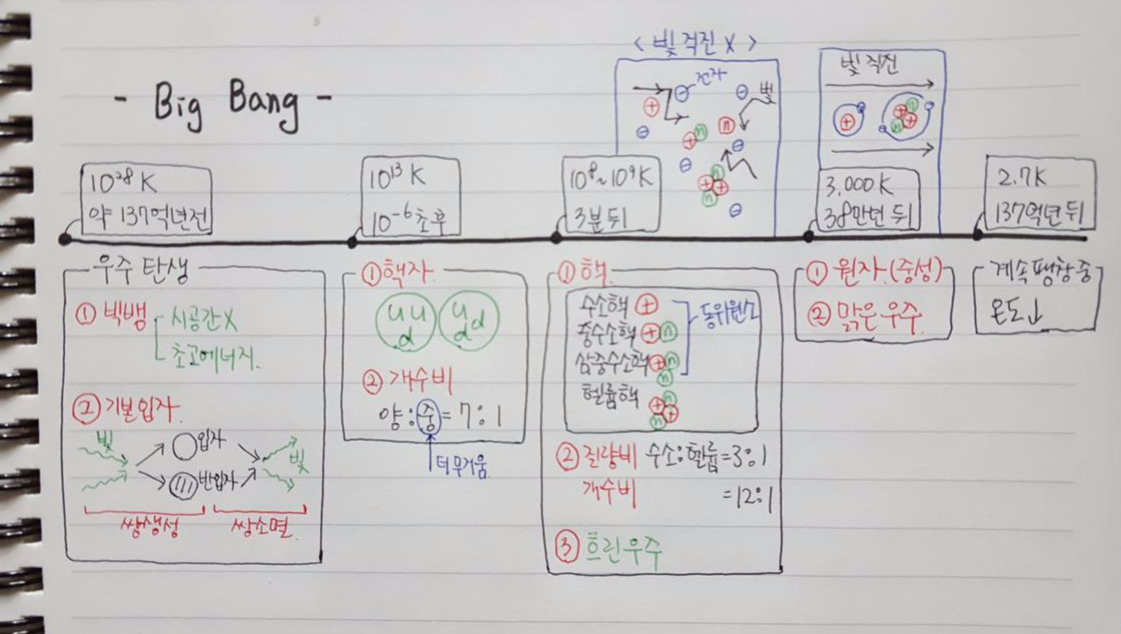 - Big Bang -
10²⁸ K
약 137억년전
10¹³ K
10⁻⁶초후
10⁸~10⁹K
3분 뒤
< 빛 직진 X >
전자
빛
+
n
빛 직진
3,000K
38만년 뒤
2.7K
137억년 뒤
우주 탄생
① 빅뱅
시공간X
초고에너지.
② 기본입자.
빛
입자
반입자
빛
쌍생성
쌍소멸.
① 핵자.
u u d
u d d
② 개수비
양:중=7:1
더무거움
① 핵.
수소핵 +
중수소핵 + n
삼중수소핵 + n n
헬륨핵 + n + n
동위원소
② 질량비 수소:헬륨=3:1
개수비 =12:1
③ 흐린우주
① 원자.(중성)
② 맑은우주.
계속팽창중
온도↓